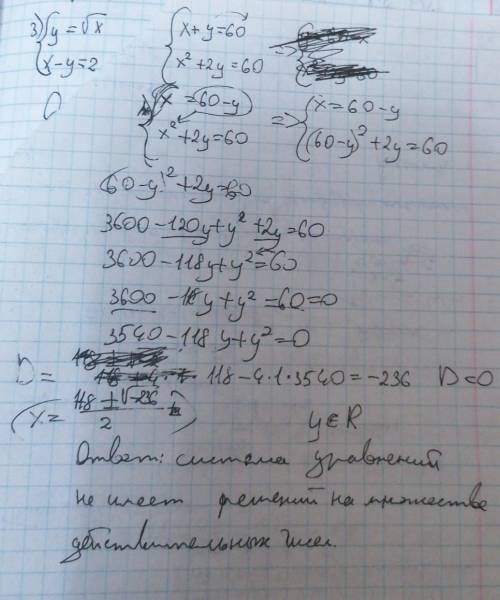 3) { y = √x { x + y = 60
{ x - y = 2 { x² + 2y = 60 =>
{ x = 60 - y => { x = 60 - y
{ x² + 2y = 60 { (60 - y)² + 2y = 60
(60 - y)² + 2y = 60
3600 - 120y + y² + 2y = 60
3600 - 118y + y² = 60
3600 - 118y + y² - 60 = 0
3540 - 118y + y² = 0
D = 118 - 4·1·3540 = -236 D < 0
(x = (118 ± √-236) / 2) y ∈ R
Ответ: система уравнений
не имеет решений на множестве
действительных чисел.